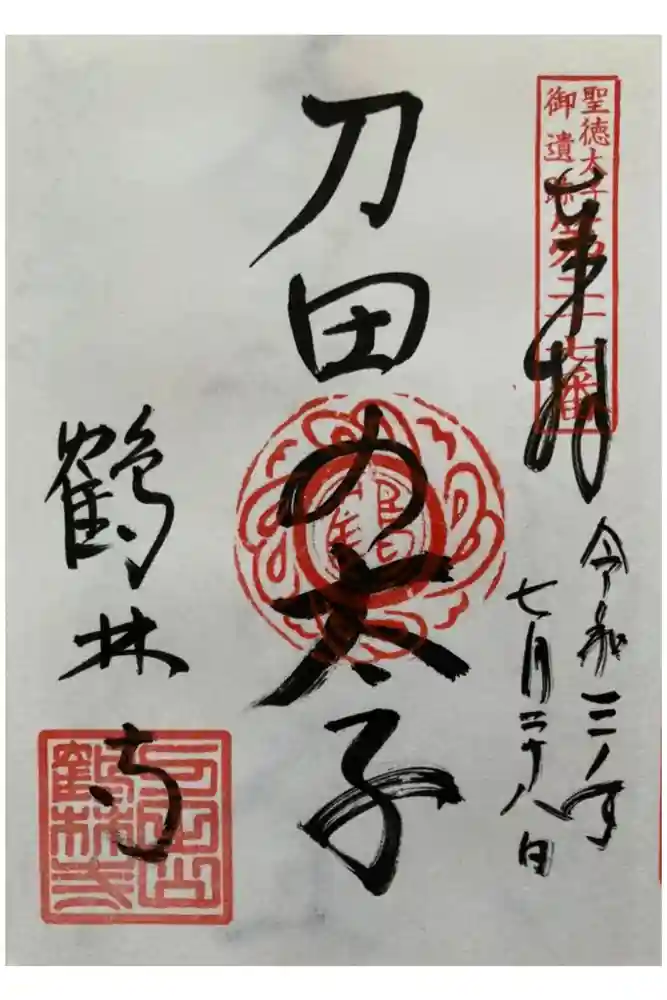 聖徳太子
御遺跡第二十七番
奉拝
令和三年
七月二十八日
刀田の太子
鶴
鶴林寺
刀田山
鶴林寺